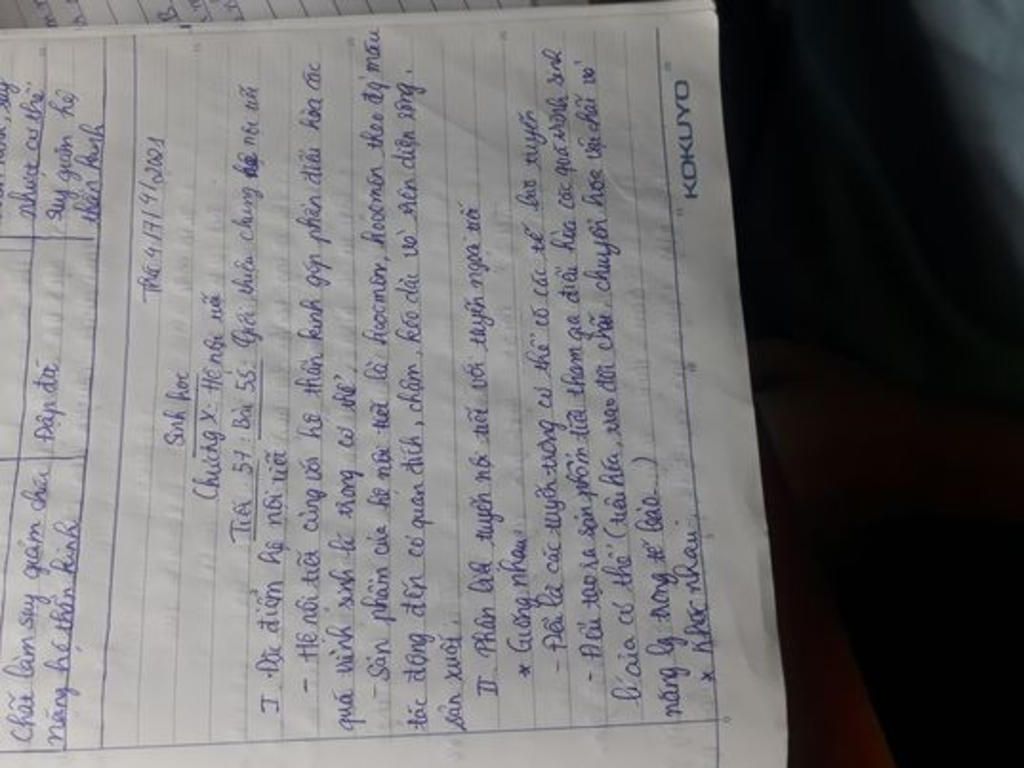 nhược cơ thể
Chất làm suy giảm chức
Đập đá
suy giảm hệ
năng hệ thần kinh
thần kinh
Thứ 4/7/4/2021
Sinh học
Chương X - Hệ nội tiết
Tiết 57: Bài 55: Giới thiệu chung hệ nội tiết
I Đặc điểm hệ nội tiết
- Hệ nội tiết cùng với hệ thần kinh góp phần điều hòa các
quá trình sinh lí trong cơ thể
- Sản phẩm của hệ nội tiết là hoocmôn, hoocmôn theo đg máu
tác động đến cơ quan đích, chậm, kéo dài và trên diện rộng.
II Phân biệt tuyến nội tiết với tuyến ngoại tiết
* Giống nhau:
- Đều là các tuyến trong cơ thể có các tế bào tuyến
- Đều tạo ra sản phẩm tiết tham gia điều hòa các quá trình sinh
lí của cơ thể (tiêu hóa, trao đổi chất, chuyển hóa vật chất và
năng lg trong tế bào...)
* Khác nhau
KOKUYO